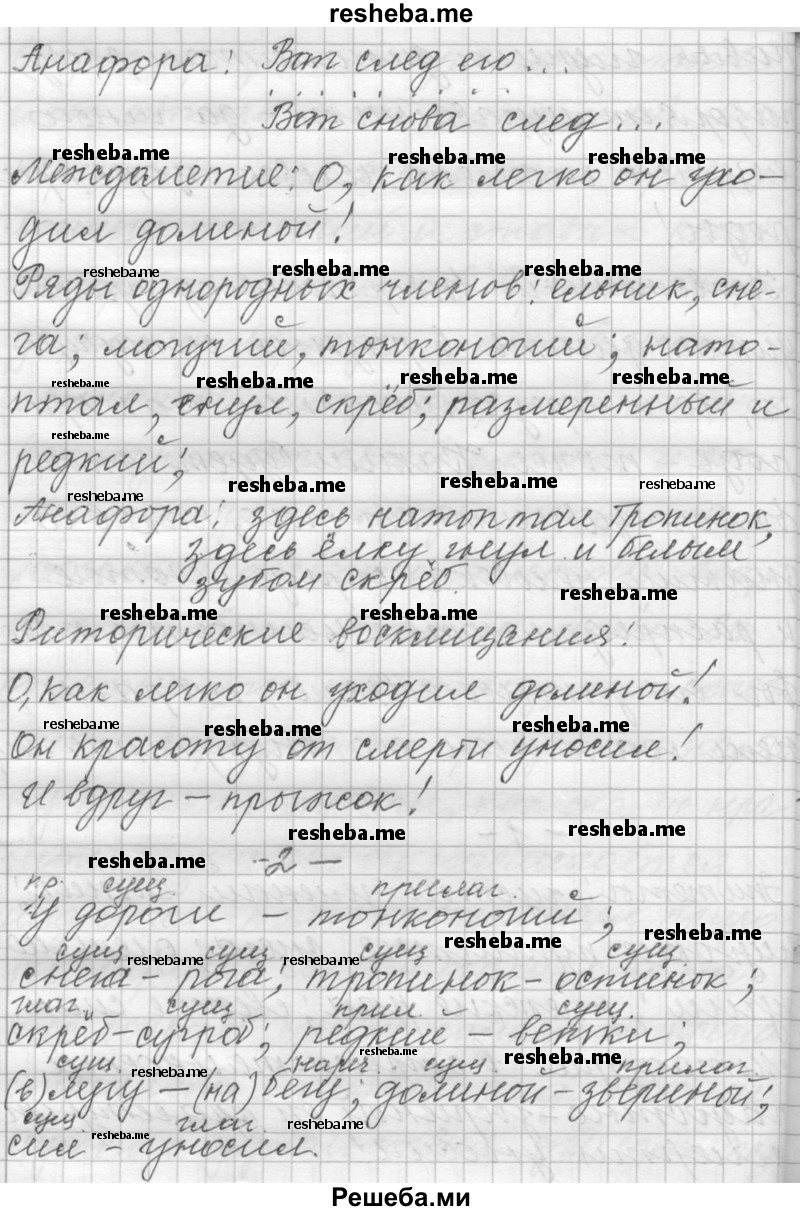 resheba.me
Анафора: Вот след его...
Вот снова след...
resheba.me resheba.me resheba.me
Междометие: О, как легко он ухо-
дил долиной!
resheba.me resheba.me resheba.me
Ряды однородных членов: ельник, сне-
га; могучий, тонконогий; нато-
resheba.me resheba.me resheba.me resheba.me
птал, гнул, скрёб; размеренный и
resheba.me
редкий;
resheba.me resheba.me resheba.me resheba.me
Анафора: здесь натоптал тропинок,
здесь ёлку гнул и белым
зубом скрёб.
resheba.me
resheba.me resheba.me
Риторические восклицания:
О, как легко он уходил долиной!
resheba.me resheba.me resheba.me
Он красоту от смерти уносил!
И вдруг – прыжок!
resheba.me resheba.me
resheba.me -2-
пр. сущ. прилаг.
У дороги – тонконогий;
resheba.me resheba.me
сущ сущ сущ сущ.
resheba.me resheba.me
снега – рога; тропинок – остинок;
глаг. сущ. прил. сущ.
скрёб – сугроб; редкие – ветки;
resheba.me resheba.me
сущ. нареч. сущ прилаг.
resheba.me
(в) лугу – (на) бегу; долиной – звериной;
сущ глаг.
resheba.me resheba.me
сил – уносил.
Решеба.ми